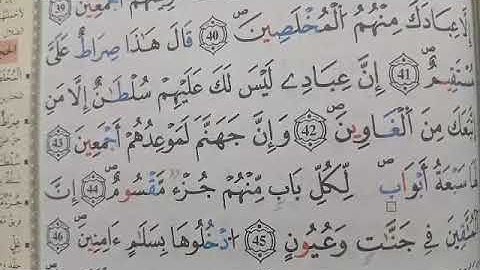 أَجْمَعِينَ ۝39
إِلَّا عِبَادَكَ مِنْهُمُ الْمُخْلَصِينَ ۝40 قَالَ هَٰذَا صِرَاطٌ عَلَيَّ
مُسْتَقِيمٌ ۝41 إِنَّ عِبَادِي لَيْسَ لَكَ عَلَيْهِمْ سُلْطَٰنٌ إِلَّا مَنِ
اتَّبَعَكَ مِنَ الْغَاوِينَ ۝42 وَإِنَّ جَهَنَّمَ لَمَوْعِدُهُمْ أَجْمَعِينَ ۝43
لَهَا سَبْعَةُ أَبْوَابٍ لِّكُلِّ بَابٍ مِّنْهُمْ جُزْءٌ مَّقْسُومٌ ۝44 إِنَّ
الْمُتَّقِينَ فِي جَنَّٰتٍ وَعُيُونٍ ۝45 ادْخُلُوهَا بِسَلَٰمٍ ءَامِنِينَ ۝46